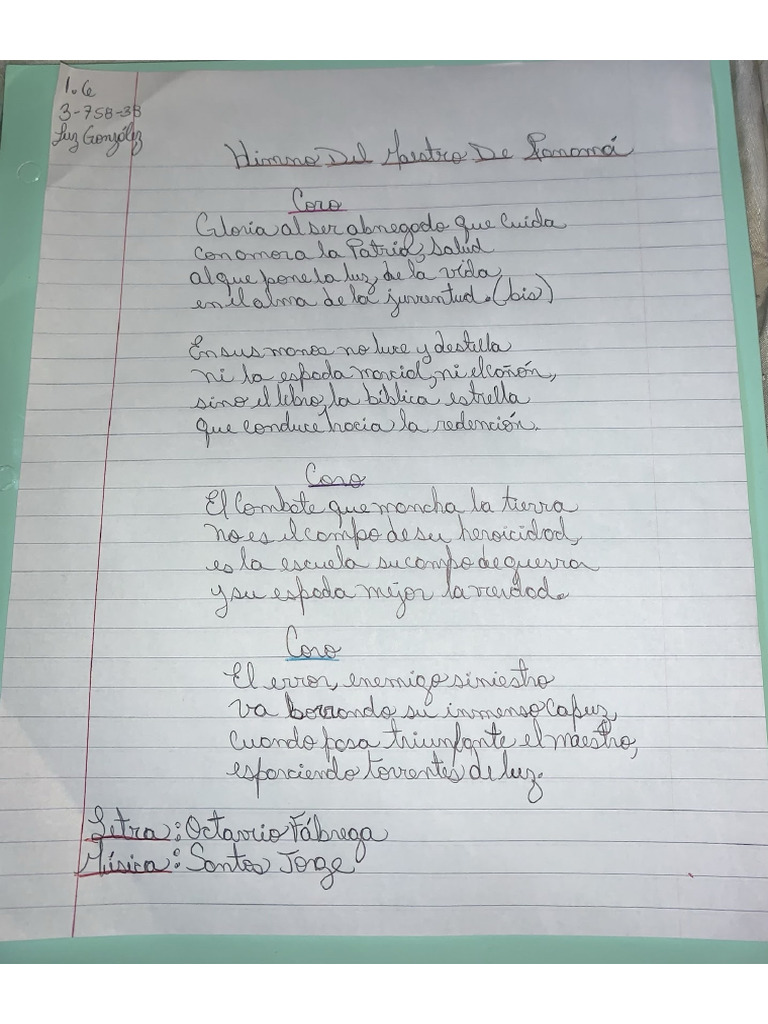 1.6
3-758-38
Luz González
Himno Del Maestro De Panamá
Coro
Gloria al ser abnegado que cuida
con amor a la Patria, salud
al que pone la luz, de la vida,
en el alma de la juventud. (bis)
En sus manos no luce y destella
ni la espada marcial, ni el cañón,
sino el libro, la bíblica estrella
que conduce hacia la redención.
Coro
El Combate que mancha la tierra
no es el campo de su heroicidad,
es la escuela su campo de guerra
y su espada mejor la verdad.
Coro
El error, enemigo siniestro
va borrando su inmenso capuz,
cuando pasa triunfante el maestro,
esparciendo torrentes de luz.
Letra: Octavio Fábrega
Música: Santos Jorge